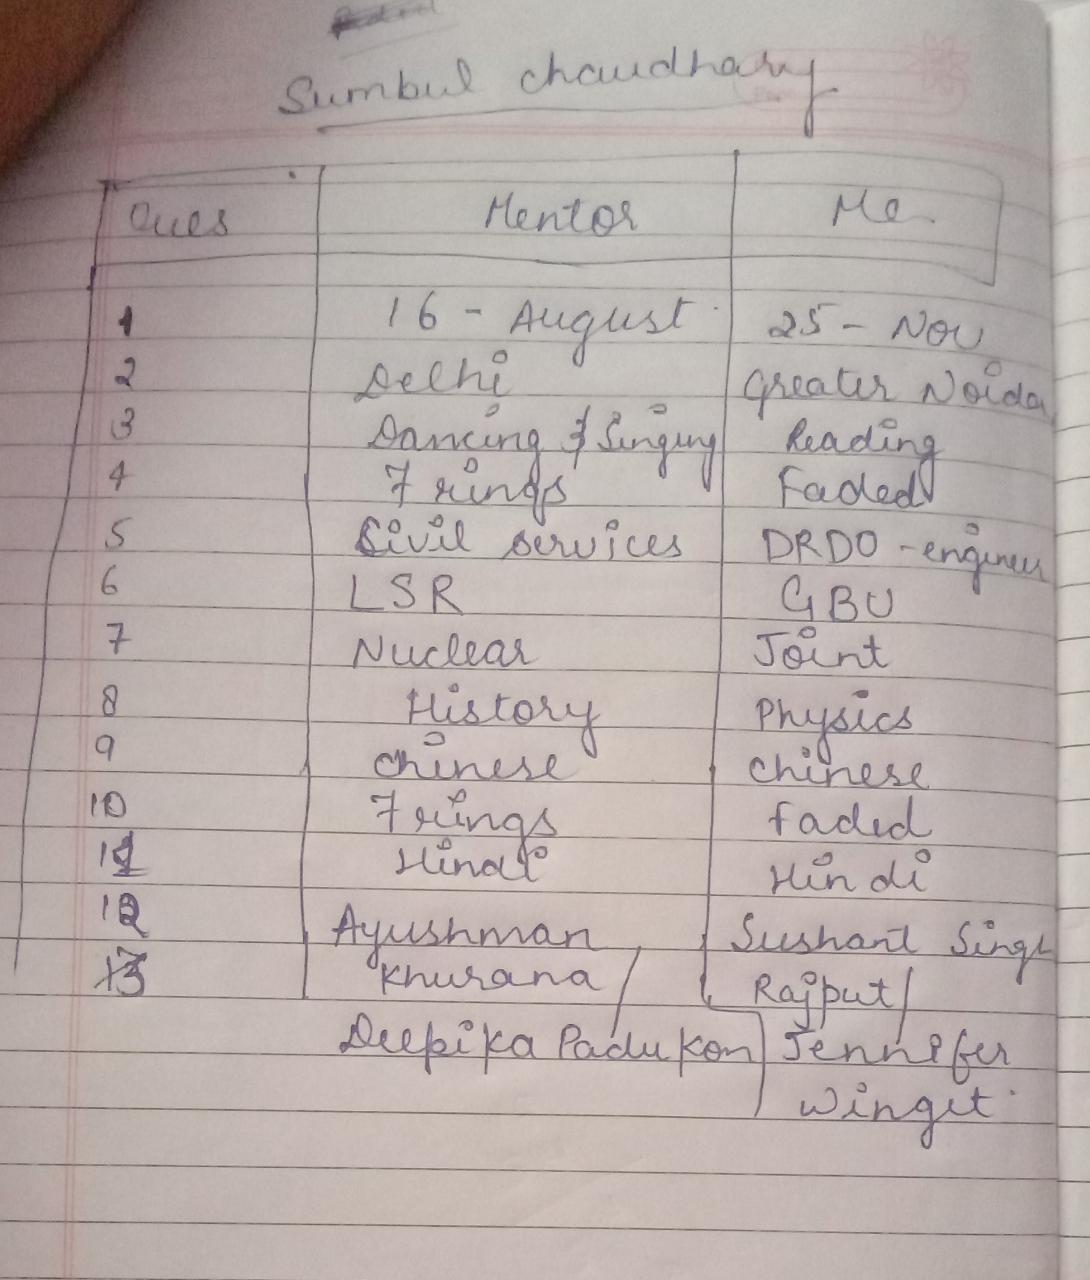 Sumbul chaudhary
Ques Mentor Me
1 16 - August 25 - Nov
2 Delhi Greater Noida
3 Dancing & Singing Reading
4 7 rings Faded
5 Civil services DRDO - engineer
6 LSR GBU
7 Nuclear Joint
8 History Physics
9 chinese chinese
10 7 rings faded
11 Hindi Hindi
12 Ayushman Sushant Singh
13 Khurana / Rajput /
Deepika Padukon Jennifer
Winget